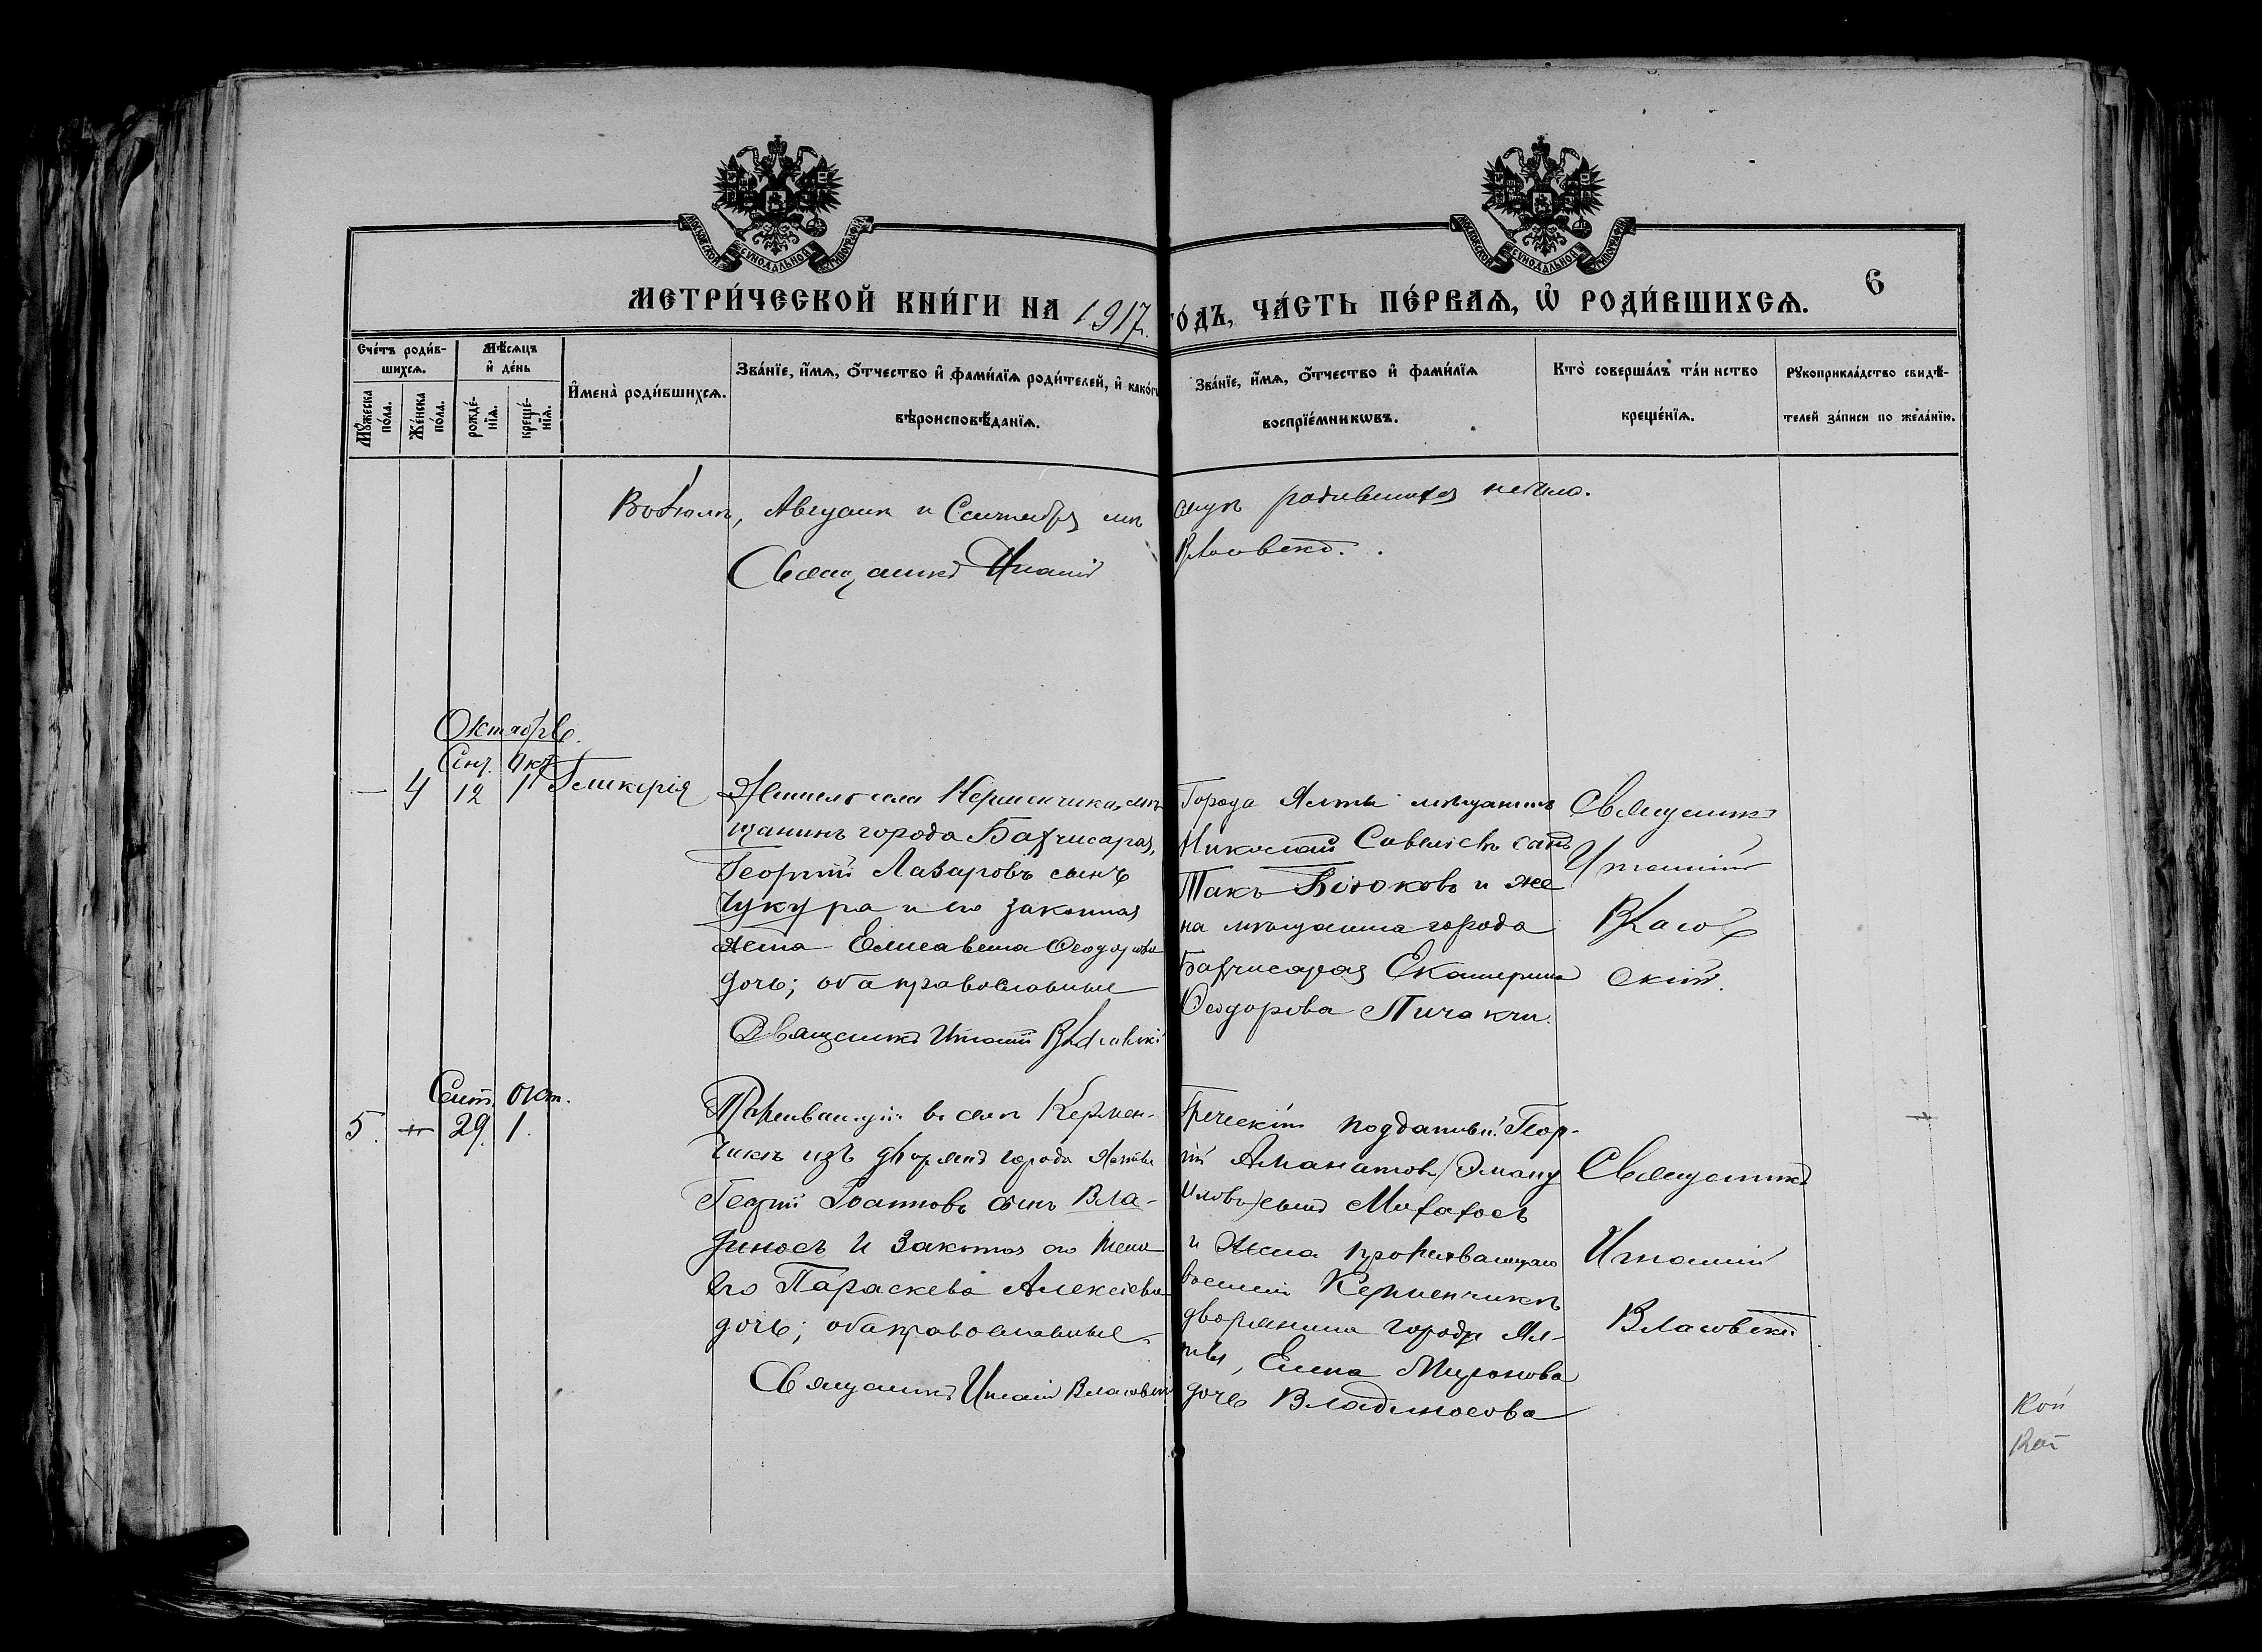 МОСКОВСКОЙ СѴНОДАЛЬНОЙ ТИПОГРАФІИ
МОСКОВСКОЙ СѴНОДАЛЬНОЙ ТИПОГРАФІИ
6
МЕТРИ́ЧЕСКОЙ КНИ́ГИ НА 1917. ГО́ДЪ, ЧА́СТЬ ПЕ́РВАѦ, Ѡ҆ РОДИ́ВШИХСѦ.
Сче́тъ роди́в-
шихсѧ.
Мꙋ́жеска по́ла.
Же́нска по́ла.
Мѣ́сѧцъ
и҆ де́нь
рожде́-
нїѧ.
креще́-
нїѧ.
И҆мена̀ роди́вшихсѧ.
Зва́нїе, и҆́мѧ, ѻ҆́тчество и҆ фами́лїѧ роди́телей, и҆ како́гѡ
вѣроисповѣ́данїѧ.
Зва́нїе, и҆́мѧ, ѻ҆́тчество и҆ фами́лїѧ
воспрїе́мникѡвъ.
Кто̀ соверша́лъ та́инство
креще́нїѧ.
Рꙋкоприкла́дство свидѣ́-
телей за́писи по жела́нїю.
Во Іюлѣ, Августѣ и Сентябрѣ мѣ сяцѣ родившихся небыло.
Священникъ Игнатій Власовскій.
Октябрь.
Сент. Окт.
— 4 12 1 Гликерія
Житель села Керменчика, мѣ-
щанинъ города Бахчисарая,
Георгій Лазаровъ сынъ
Чукура и его законная
жена Елисавета Ѳеодорова
дочь; оба православные
Священникъ Игнатій Власовскій
Города Ялты мѣщанинъ
Николай Савельевъ сынъ
Біюковъ и же
на мѣщанина города
Бахчисарая Екатерина
Ѳеодорова Пичакчи.
Священникъ
Игнатій
Власов
скій.
Сент. Окт.
5. 29. 1.
Проживающій въ селѣ Кермен-
чикѣ изъ дворянъ города Ялты
Георгій Іоанновъ сынъ Вла-
диносъ и законная его жена
его Параскева Алексіева
дочь; оба православные.
Священникъ Игнатій Власовскій
Греческій подданный Геор-
гій Аманатовъ (Эману
иловъ) сынъ
и жена проживающаго
въ селѣ Керменчикѣ
дворянина города Ял-
ты, Елена Миронова
дочь Владиносова
Священникъ
Игнатій
Власовскій